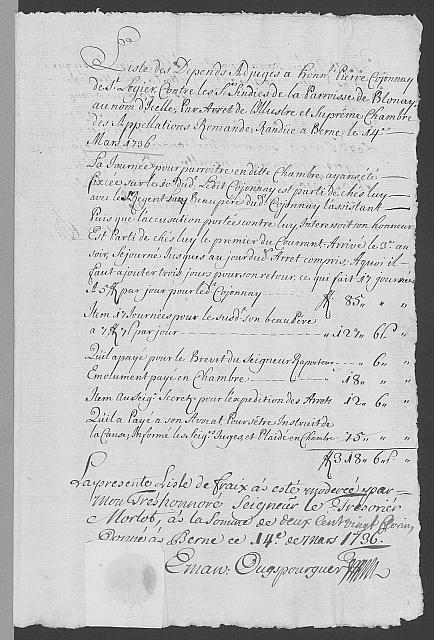 Liste des Depends Adjugés a honn. Pierre Cojonnay
de St. Legier, Contre les Srs. Sindics de la Parroisse de Blonay
au nom d'Icelle, Par Arret de l'Illustre et Suprême Chambre
des Appellations Romande, Randüe a Berne le 14e.
Mars 1736
La Journée pour parroître en ditte Chambre ayans été
fixcée sur le 10e. dud. Ledit Cojonnay est parti de chés luy
avec le Sr. Regent Beaupere dud. Cojonnay l'assistant
Puis que l'accusation portée contre luy Interessoit son honneur
Est Parti de chés luy le premier du Courrant, Arrivé le 3e. au
soir, Séjourné Jusques au jour dud. Arret compris, Aquoi il
faut ajouter trois jours pour son retour, ce qui fait 17 journées
A 5 ₶ par jour pour led. Cojonnay ₶ 85 " "
Item 17 Journées pour le susd. son beau Pére
a 7 ₶ 7 s par jour " 127 " 6 s "
Qu'il a payé pour le Brevet du Seigneur Raporteur " 6 " "
Emolument payé en Chambre " 18 " "
Item Au Seigr. Secretr. pour l'expedition des Arrets " 12 " 6 "
Qu'il a Payé a son Avocat Pour s'être Instruit de
la Cause, Informé les Seigr. Juges, et Plaidé en Chambre " 75 " "
₶ 318 " 6 s "
La presente Liste de fraix as esté moderéé par
mon Treshonnoré Seigneur le Tresorier
Morlot, à la Somme de deux Cent vingt florins
Donné à Berne ce 14e. de Mars 1736.
Eman. Ougspourguer